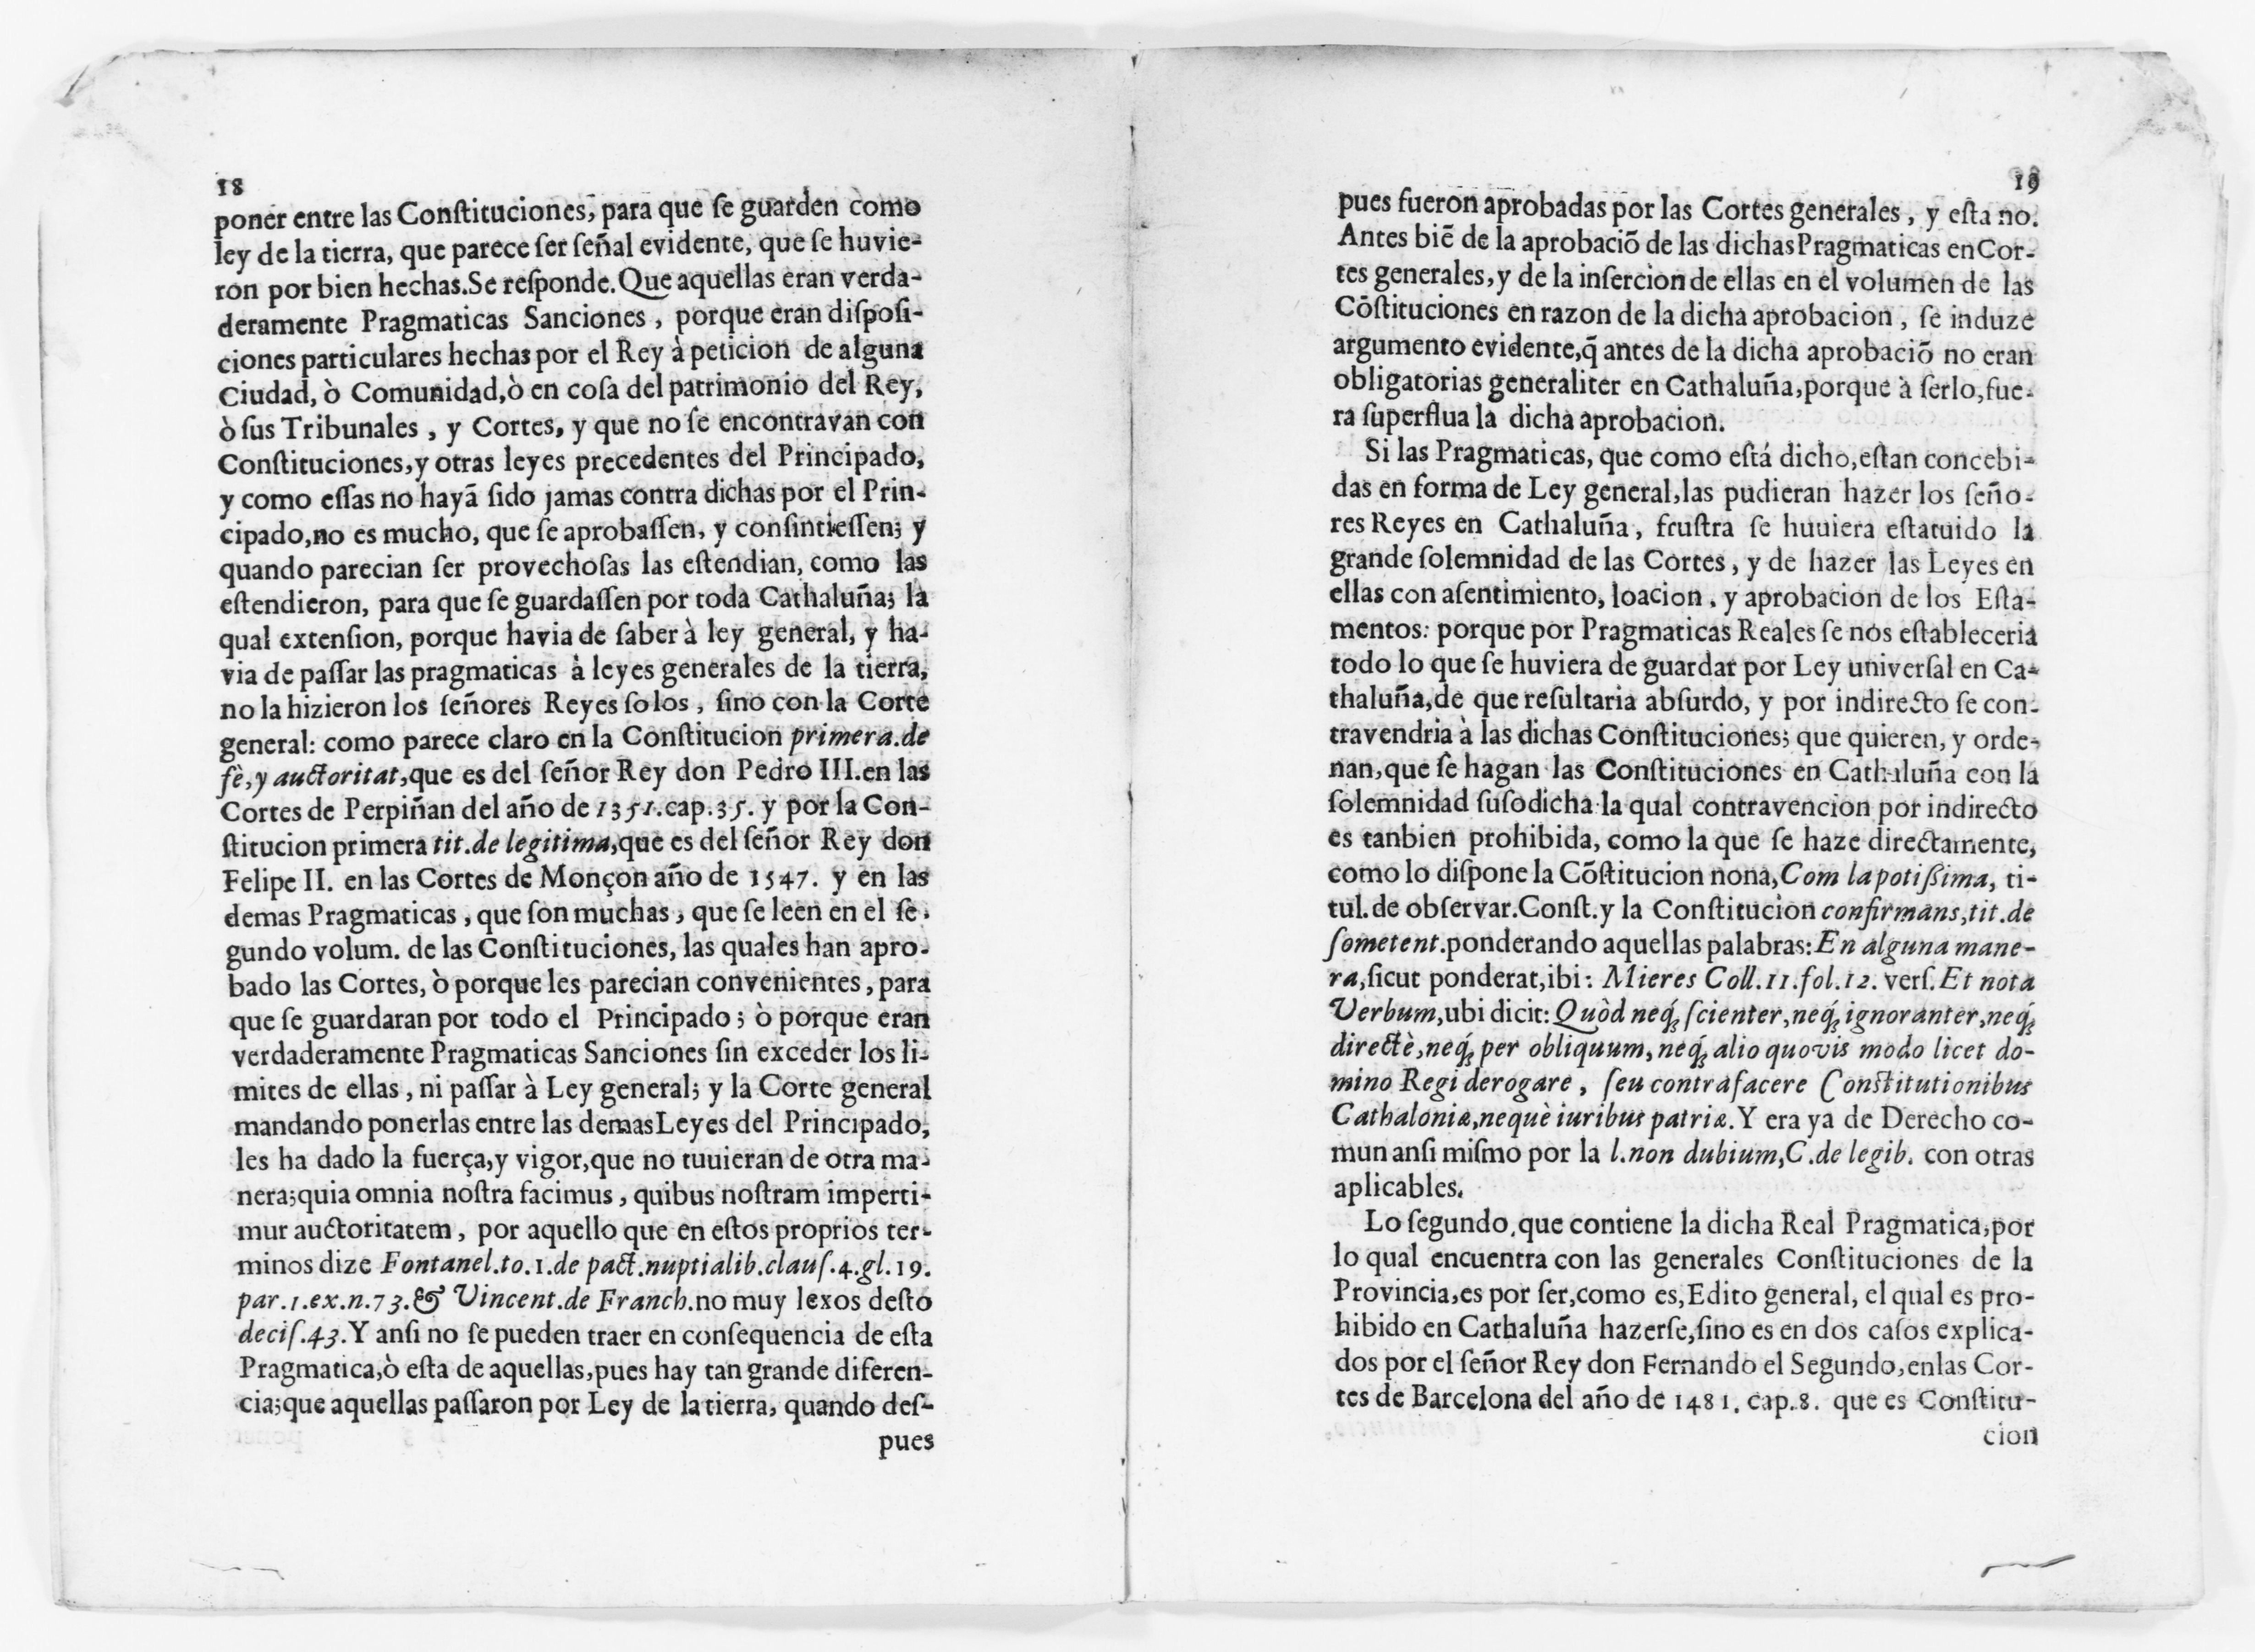 18
poner entre las Conſtituciones, para que ſe guarden còmo
ley de la tierra, que parece ſer ſeñal evidente, que ſe huvie-
ron por bien hechas.Se reſponde.Que aquellas eran verda-
deramente Pragmaticas Sanciones, porque eran diſpoſi-
ciones particulares hechas por el Rey à peticion de alguna
Ciudad, ò Comunidad,ò en coſa del patrimonio del Rey,
ò ſus Tribunales, y Cortes, y que no ſe encontravan con
Conſtituciones,y otras leyes precedentes del Principado,
y como eſſas no hayã ſido jamas contra dichas por el Prin-
cipado,no es mucho, que ſe aprobaſſen, y conſintieſſen; y
quando parecian ſer provechoſas las eſtendian, como las
eſtendieron, para que ſe guardaſſen por toda Cathaluña; la
qual extenſion, porque havia de ſaber à ley general, y ha-
via de paſſar las pragmaticas à leyes generales de la tierra,
no la hizieron los ſeñores Reyes ſolos, ſino con la Corte
general: como parece claro en la Conſtitucion primera.de
fè,y auctoritat,que es del ſeñor Rey don Pedro III.en las
Cortes de Perpiñan del año de 1351.cap.35. y por la Con-
ſtitucion primera tit.de legitima,que es del ſeñor Rey don
Felipe II. en las Cortes de Monçon año de 1547. y en las
demas Pragmaticas, que ſon muchas, que ſe leen en el ſe-
gundo volum. de las Conſtituciones, las quales han apro-
bado las Cortes, ò porque les parecian convenientes, para
que ſe guardaran por todo el Principado; ò porque eran
verdaderamente Pragmaticas Sanciones ſin exceder los li-
mites de ellas, ni paſſar à Ley general; y la Corte general
mandando ponerlas entre las demas Leyes del Principado,
les ha dado la fuerça,y vigor,que no tuuieran de otra ma-
nera;quia omnia noſtra facimus, quibus noſtram imperti-
mur auctoritatem, por aquello que en eſtos proprios ter-
minos dize Fontanel.to.1.de pact.nuptialib.clauſ.4.gl.19.
par.1.ex.n.73.& Vincent.de Franch.no muy lexos deſto
deciſ.43.Y anſi no ſe pueden traer en conſequencia de eſta
Pragmatica,ò eſta de aquellas,pues hay tan grande diferen-
cia;que aquellas paſſaron por Ley de la tierra, quando deſ-
pues
19
pues fueron aprobadas por las Cortes generales, y eſta no.
Antes biẽ de la aprobaciõ de las dichas Pragmaticas en Cor-
tes generales,y de la inſercion de ellas en el volumen de las
Cõſtituciones en razon de la dicha aprobacion, ſe induze
argumento evidente,q̃ antes de la dicha aprobaciõ no eran
obligatorias generaliter en Cathaluña,porque à ſerlo,fue-
ra ſuperflua la dicha aprobacion.
Si las Pragmaticas, que como eſtá dicho,eſtan concebi-
das en forma de Ley general,las pudieran hazer los ſeño-
res Reyes en Cathaluña, fruſtra ſe huuiera eſtatuido la
grande ſolemnidad de las Cortes, y de hazer las Leyes en
ellas con aſentimiento, loacion, y aprobacion de los Eſta-
mentos: porque por Pragmaticas Reales ſe nos eſtableceria
todo lo que ſe huviera de guardar por Ley univerſal en Ca-
thaluña,de que reſultaria abſurdo, y por indirecto ſe con-
travendria à las dichas Conſtituciones; que quieren, y orde-
nan,que ſe hagan las Conſtituciones en Cathaluña con la
ſolemnidad ſuſodicha la qual contravencion por indirecto
es tanbien prohibida, como la que ſe haze directamente,
como lo diſpone la Cõſtitucion nona,Com la potiſſima, ti-
tul.de obſervar.Conſt.y la Conſtitucion confirmans,tit.de
ſometent.ponderando aquellas palabras:En alguna mane-
ra,ſicut ponderat,ibi: Mieres Coll.11.fol.12. verſ.Et nota
Verbum,ubi dicit:Quòd neq́; ſcienter,neq́; ignoranter,neq́;
directè,neq́; per obliquum,neq́; alio quovis modo licet do-
mino Regi derogare, ſeu contrafacere Conſtitutionibus
Cathaloniæ,nequè iuribus patriæ.Y era ya de Derecho co-
mun anſi miſmo por la l.non dubium,C.de legib. con otras
aplicables.
Lo ſegundo,que contiene la dicha Real Pragmatica,por
lo qual encuentra con las generales Conſtituciones de la
Provincia,es por ſer,como es,Edito general, el qual es pro-
hibido en Cathaluña hazerſe,ſino es en dos caſos explica-
dos por el ſeñor Rey don Fernando el Segundo,en las Cor-
tes de Barcelona del año de 1481. cap.8. que es Conſtitu-
cion